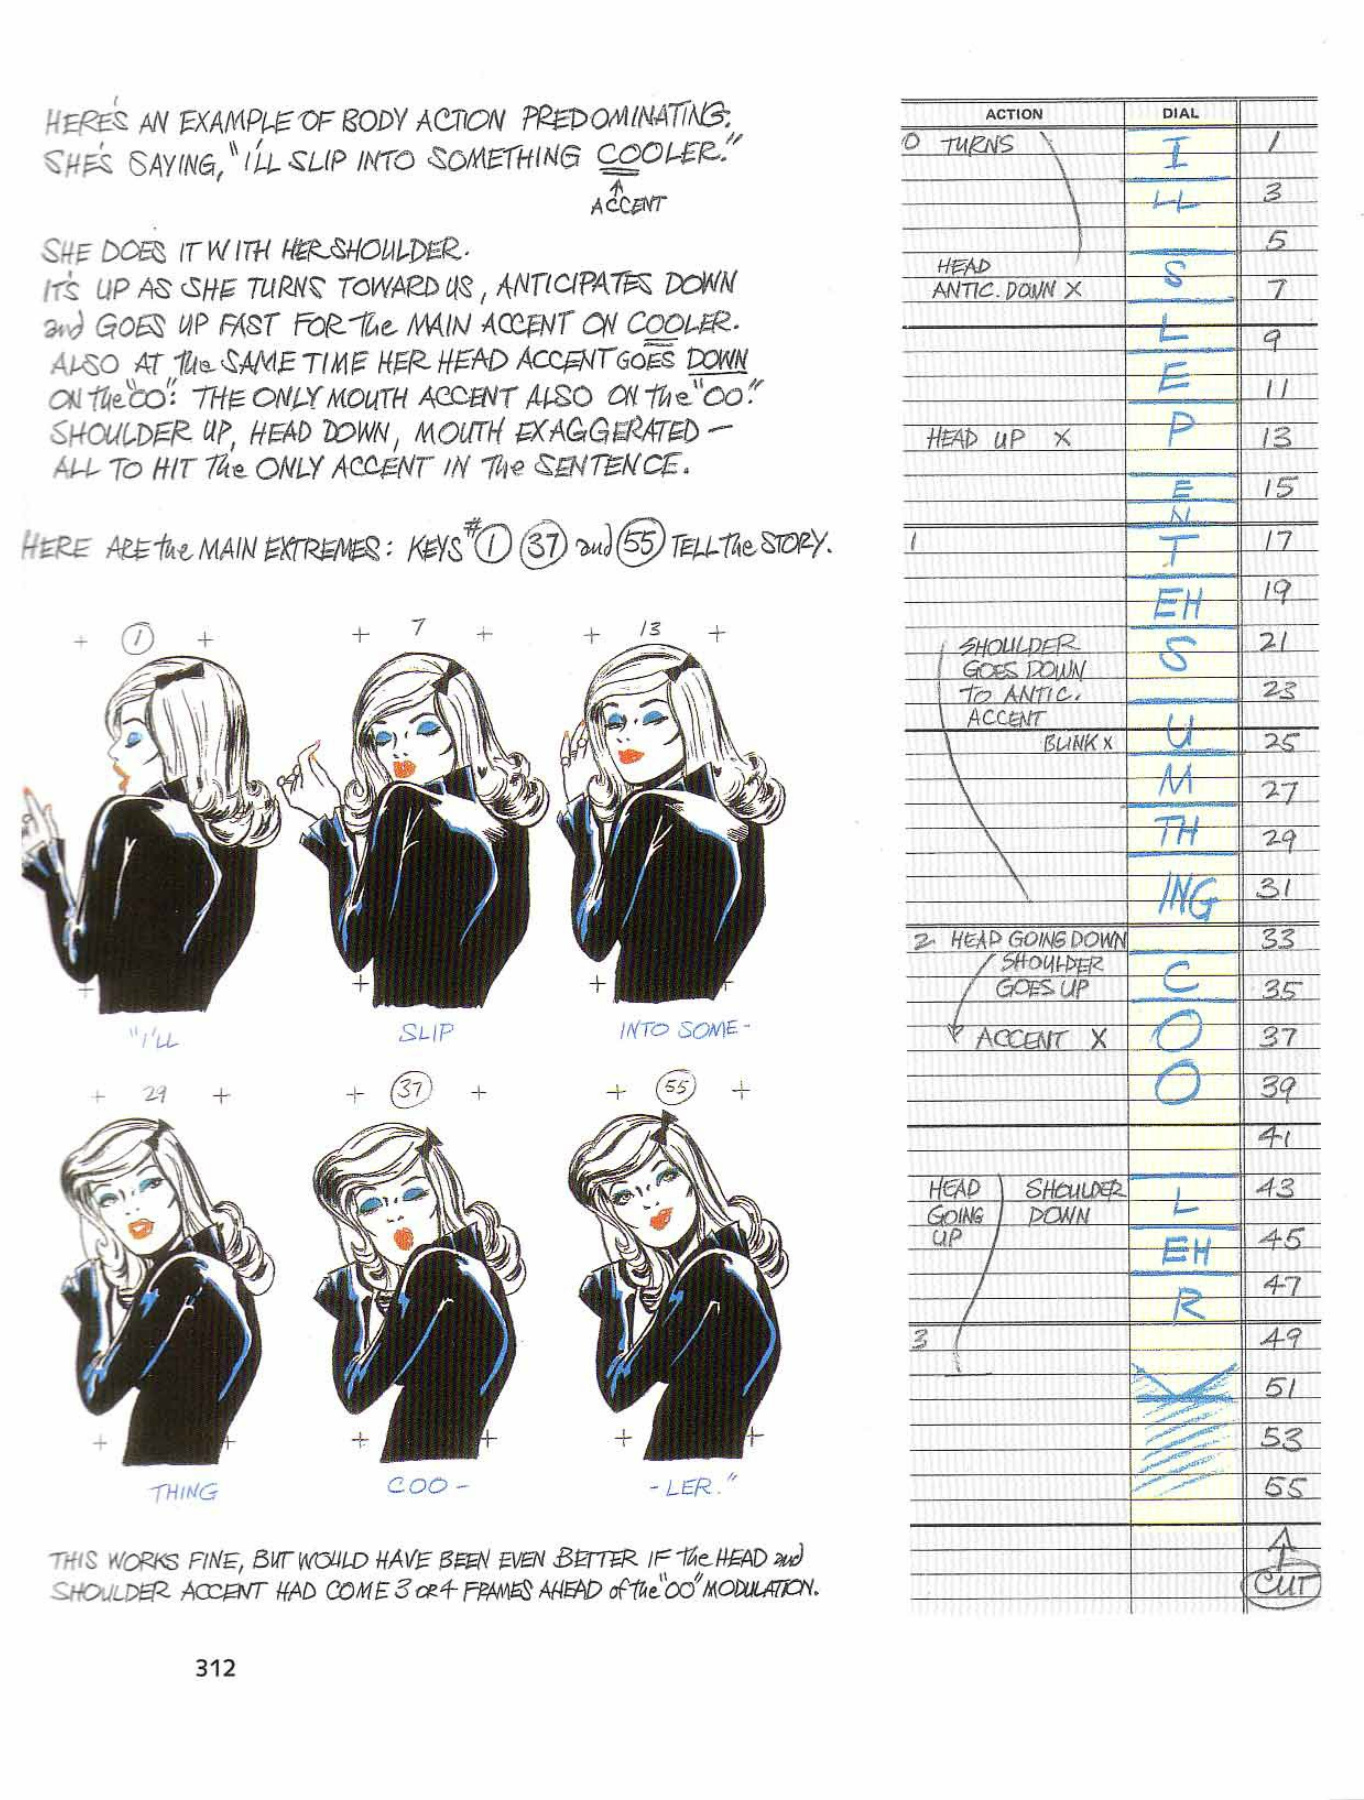 HERE'S AN EXAMPLE OF BODY ACTION PREDOMINATING.
SHE'S SAYING, "I'LL SLIP INTO SOMETHING COOLER."
ACCENT
SHE DOES IT WITH HER SHOULDER.
IT'S UP AS SHE TURNS TOWARD US, ANTICIPATES DOWN
and GOES UP FAST FOR The MAIN ACCENT ON COOLER.
ALSO AT The SAME TIME HER HEAD ACCENT GOES DOWN
ON the "CO": THE ONLY MOUTH ACCENT ALSO ON the "OO."
SHOULDER UP, HEAD DOWN, MOUTH EXAGGERATED —
ALL TO HIT The ONLY ACCENT IN The SENTENCE.
HERE ARE the MAIN EXTREMES: KEYS #1 37 and 55 TELL The STORY.
1 7 13
"I'LL SLIP INTO SOME-
29 37 55
THING COO- -LER."
THIS WORKS FINE, BUT WOULD HAVE BEEN EVEN BETTER IF the HEAD and
SHOULDER ACCENT HAD COME 3 OR 4 FRAMES AHEAD of the "OO" MODULATION.
312
ACTION DIAL
0 TURNS I 1
LL 3
5
HEAD S
ANTIC. DOWN X 7
L 9
E 11
HEAD UP X P 13
E 15
N
1 T 17
EH 19
SHOULDER S 21
GOES DOWN
TO ANTIC. 23
ACCENT
BLINK X U 25
M 27
TH 29
ING 31
2 HEAD GOING DOWN 33
SHOULDER C
GOES UP 35
ACCENT X O 37
O 39
41
HEAD SHOULDER L 43
GOING DOWN
UP EH 45
R 47
3 49
51
53
55
CUT